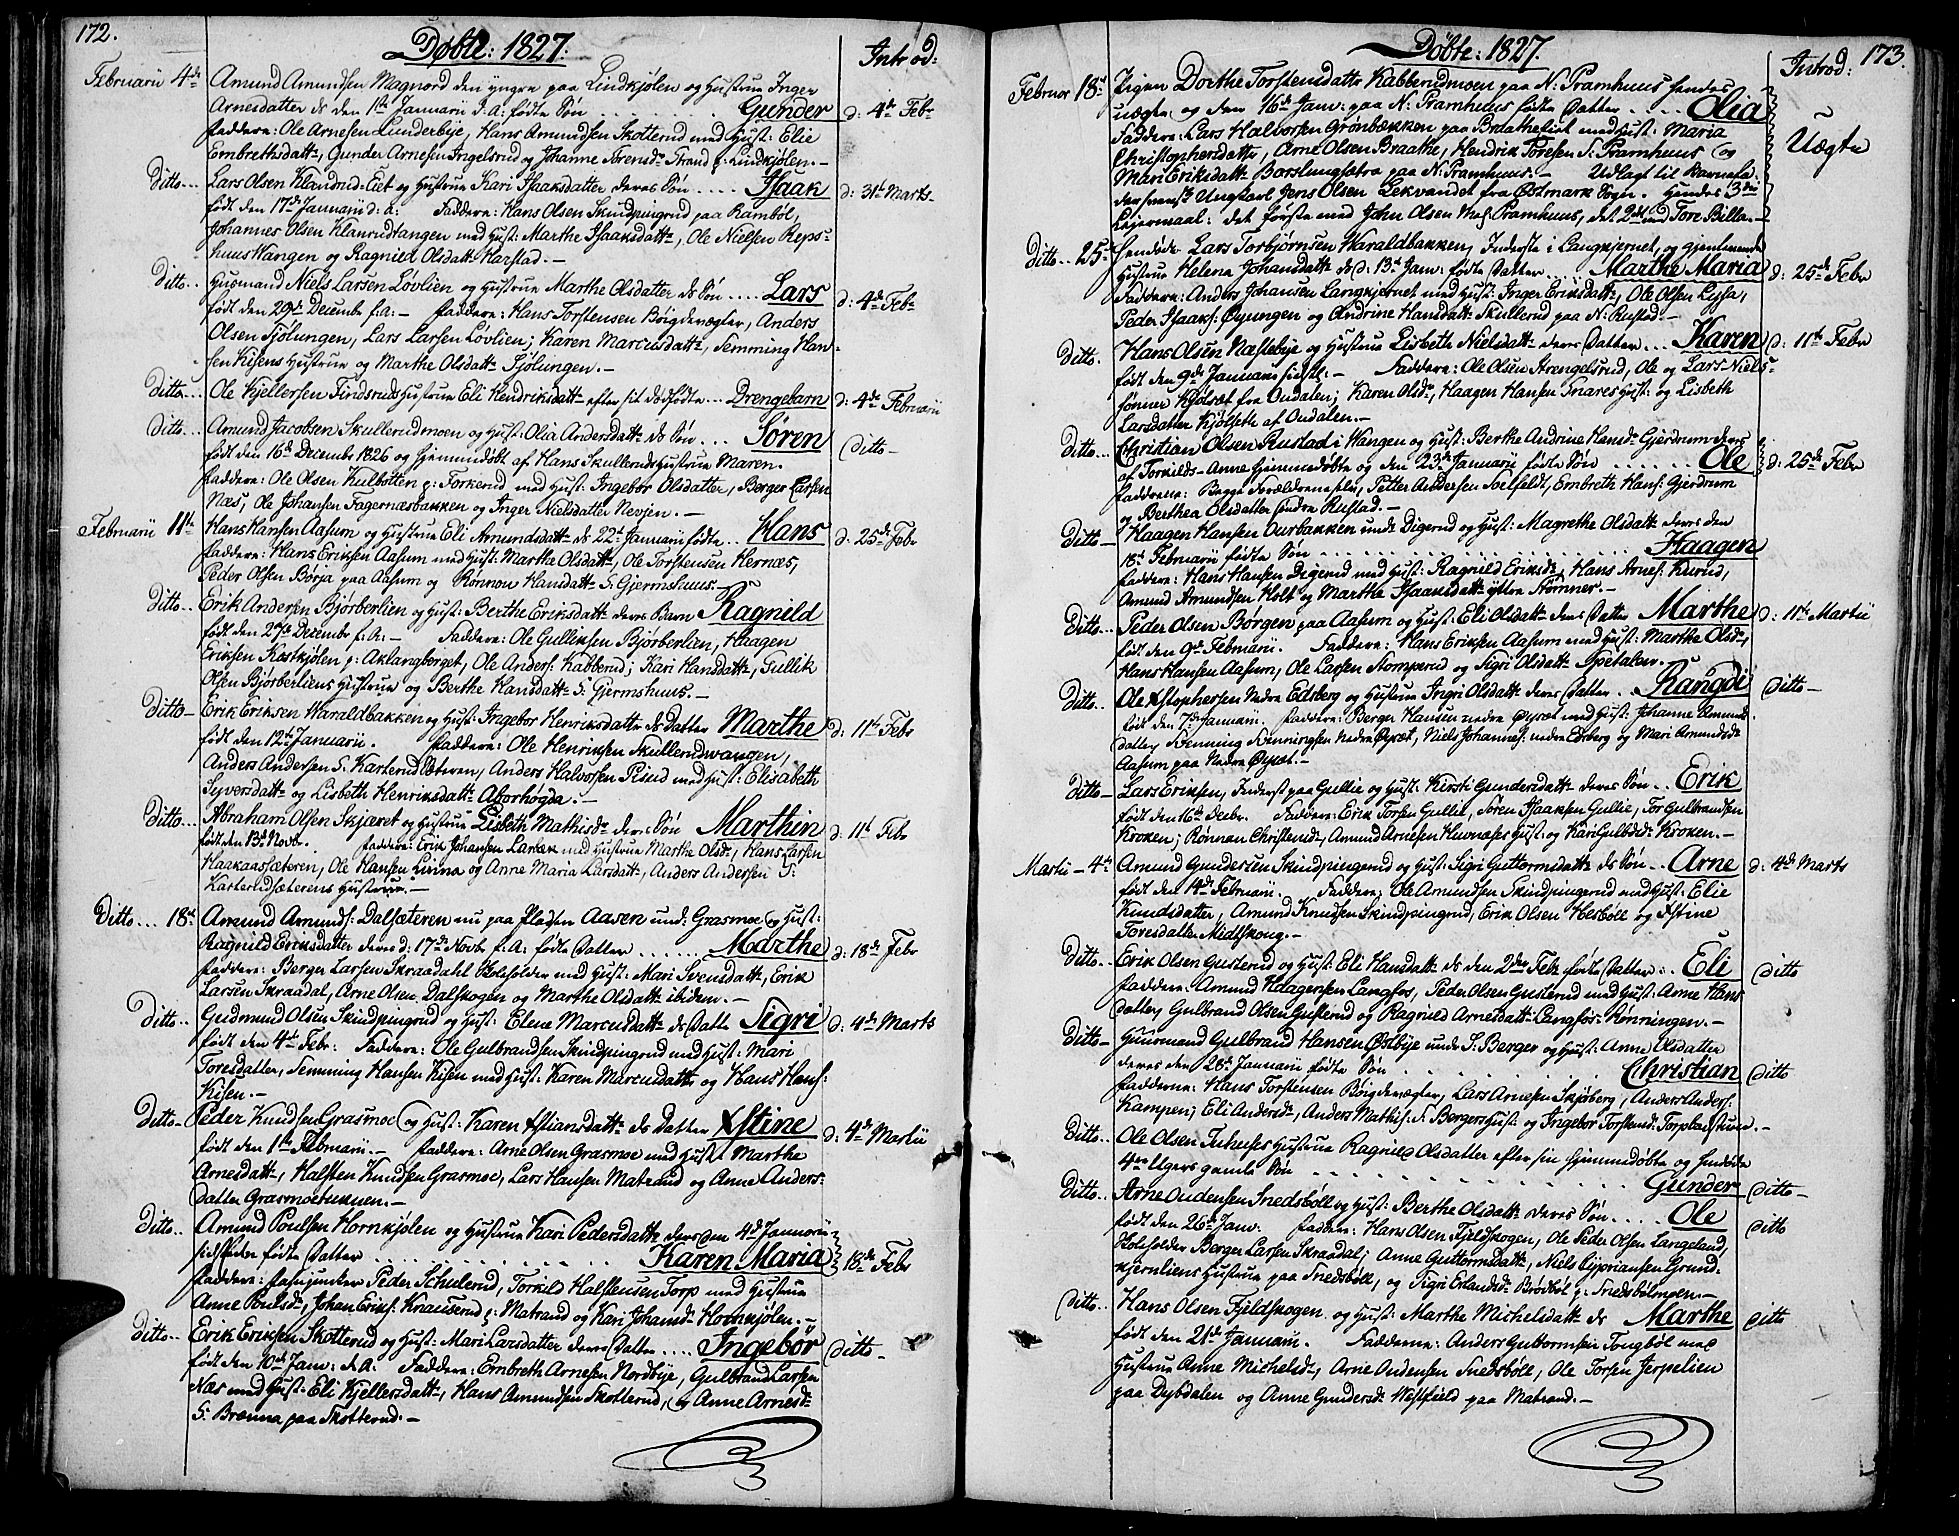 172.
Døbte: 1827.
Introd:
Februarii 4de Amund Amundsen Magnord den yngre paa Lindkjølen og Hustrue Inger
Arnesdatter ds den 1ste Januarii d. A: fødte Søn . . . Gunder d: 4de Febr
Faddere: Ole Arnesen Lunderbye, Hans Amundsen Skotterud med Hust: Elie
Embrethsdattr, Gunder Arnesen Ingelsrud og Johanne Torensdr Strand p: Lindkjølen. –
Ditto... Lars Olsen Klanrud-Eiet og Hustrue Kari Isaaksdatter deres Søn ..... Isaak d: 31te Marts –
født den 17de Januarii d: a: Faddere: Hans Olsen Skindpingrud paa Rambøl,
Johannes Olsen Klanrudtangen med Hust: Marthe Isaaksdattr, Ole Nielsen Reps-
huus Wangen og Ragnild Olsdattr Harstad. –
Ditto.. Husmand Niels Larsen Løvlien og Hustrue Marthe Olsdatter ds Søn .... Lars d: 4de Febr
født den 29de Decembr f: A: – Faddere: Hans Torstensen Bøigdevægter, Anders
Olsen Sjølungen, Lars Larsen Løvlien; Karen Marcusdattr, Semming Han-
sen Kisens Hustrue og Marthe Olsdattr Sjølungen. –
Ditto... Ole Kjellersen Findsruds Hustrue Eli Hendriksdattr efter sit dødfødte ... Drengebarn d: 4de Februarii
Ditto... Amund Jacobsen Skullerudmoen og Hust: Olia Andersdattr ds Søn .... Søren Ditto –
født den 16de Decembr 1826 og hjemmedøbt af Hans Skulleruds Hustrue Maren.
Faddere: Ole Olsen Kulbotten p: Forkerud med Hust: Ingebor Olsdatter, Berger Larsen
Næs, Ole Johansen Fagernæsbakken og Inger Nielsdatter Nevjen. –
Februarii 11te Hans Hansen Aasum og Hustrue Eli Amundsdattr ds 22de Januarii fødte .. Hans d: 25de Febr
Faddere: Hans Eriksen Aasum med Hust: Martha Olsdattr, Ole Torstensen Hernæs,
Peder Olsen Børja paa Aasum og Rønnou Hansdattr S: Gjermshuus. –
Ditto.. Erik Andersen Bjørberlien og Hust: Berthe Eriksdattr deres Barn Ragnild
født den 27de Decembr f: A: – Faddere: Ole Gulliksen Bjørberlien, Haagen
Eriksen Kastkjølen p: Aklangberget, Ole Anders: Kabberud; Kari Hansdattr, Gullik
Olsen Bjørberliens Hustrue og Berthe Hansdattr S: Gjermshuus. –
Ditto – Erik Eriksen Waraldbakken og Hust: Ingebor Henriksdattr ds Datter Marthe d: 11te Febr
født den 12te Januarii. Faddere: Ole Henriksen Skullerudwangen,
Anders Andersen S: Karterud Sæteren, Anders Halvorsen Pisud med Hust: Elisabeth
Syversdattr og Lisbeth Henriksdattr Aborhøgda. –
Ditto... Abraham Olsen Skjæret og Hustrue Lisbeth Mathisdr deres Søn Marthin d: 11te Febr
født den 13de Novbr. Faddere: Erik Johansen Larbæk med Hustrue Marthe Olsdr, Hans Larsen
Haakaassæteren, Ole Hansen Linna og Anne Maria Larsdattr, Anders Andersen S:
Karterudsæterens Hustrue. –
Ditto ... 18de Amund Amunds: Dalsæteren nu paa Pladsen Aasen und: Grasmoe og Hust:
Ragnild Eriksdatter deres d: 17de Novbr f: A: fødte Datter ...... Marthe d: 18de Febr
Faddere: Berger Larsen Skraadahl Skoleholder med Hust: Mari Svensdattr, Erik
Larsen Skraadal, Arne Olsen Dalskogen og Marthe Olsdattr ibidem. –
Ditto.. Gudmund Olsen Skindpingrud og Hust: Elene Marcusdattr ds Dattr Sigri d: 4de Marts
født den 4de Febr: Faddere: Ole Gulbrandsen Skindpingrud med Hust: Mari
Toresdatter, Semming Hansen Kisen med Hust: Karen Marcusdattr og Hans Hans:
Kisen. –
Ditto – Peder Knudsen Grasmoe og Hust: Karen Xstiansdattr ds Datter Xstine d: 4de Martii
født den 1ste Februarii – Faddere: Arne Olsen Grasmoe med Hust: Marthe
Arnesdattr, Halsten Knudsen Grasmoe, Lars Hansen Matrand og Anne Anders-
datter Grasmoetuenen. –
Ditto.. Amund Poulsen Hornkjølen og Hustrue Kari Pedersdattr deres den 4de Januarii
sidstleden fødte Datter . . . . Karen Maria 18de Febr
Faddere: Fasjunker Peder Schulerud, Torkild Halstensen Torp med Hustrue
Anne Poulsdr, Johan Eriks: Knauserud p: Matrand og Kari Johansdr Hornkjølen. –
Ditto.. Erik Eriksen Skotterud og Hust: Mari Larsdatter deres Datter ..... Ingebor Ditto –
født den 10de Janv: d. A: Faddere: Embreth Arnesen Nordbye, Gulbrand Larsen
Næs med Hust: Eli Kjellersdattr, Hans Amundsen Skotterud, og Anne Arnesdr
S: Brænna paa Skotterud. –
Døbte: 1827.
Introd: 173.
Februar 18de Pigen Dorthe Torstensdattr Kabberudmoen paa N: Pramhuus hendes
uægte og den 16de Janv: paa N: Pramhuus fødte Datter .... Olia
Uægte
Faddere: Lars Halvorsen Grønbækken paa Braatheeiet med Hust: Maria
Christophersdattr, Arne Olsen Braathe, Hendrik Toresen S: Pramhuus og
Mari Eriksdattr Børslungsætra paa N: Pramhuus. – Udlagt til Barnefa-
der svensk Ungkarl Jens Olsen Lekvandet fra Østmark Sogn. Hendes 3die
Leiermaal: det første med John Olsen Mos: Pramhuus, det 2det med Tore Billa. –
Ditto.. 25de Hendøde Lars Torbjørnsen Waraldbakken, Inderste i Langkjernet, og gjenlevende
Hustrue Helena Johansdattr ds d: 13de Janv: fødte Datter ... Marthe Maria d: 25de Febr
Faddere: Anders Johansen Langkjernet med Hust: Inger Eriksdattr, Ole Olsen Lyssa,
Peder Isaaks: Øyungen og Andrine Hansdattr Skullerud paa N: Rustad. –
Ditto. Hans Olsen Næstebye og Hustrue Lisbeth Nielsdattr deres Datter ... Karen d: 11te Febr
født den 9de Januarii sidstl: – Faddere: Ole Olsen Strengelsrud, Ole og Lars Niels-
sønner Kjølsæt fra Oudalen; Karen Olsdr, Haagen Hansen Snares Hust: og Lisbeth
Larsdatter Kjølseth af Oudalen. –
Ditto.. Christian Olsen Rustad i Wangen og Hust: Berthe Andrine Hansdr Gjerdrum deres
af Torkilds-Anne hjemmedøbte og den 23de Januarii fødte Søn ...... Ole d: 25de Febr
Fadderne: Begge Forældrene selv, Petter Andersen Soelfeldt, Embreth Hans: Gjerdrum
og Berthea Olsdatter Søndre Rustad. –
Ditto – Haagen Hansen Ourbakken unde Digerud og Hust: Magrethe Olsdattr deres den
18de Februarii fødte Søn . . . . Haagen
Faddere: Hans Hansen Digerud med Hust: Ragnild Eriksdr, Hans Arnes: Kurud,
Amund Amundsen Holt og Marthe Isaaksdattr yttre Strømner. –
Ditto... Peder Olsen Børgen paa Aasum og Hust: Eli Olsdattr deres Datter Marthe d: 11te Martii
født den 9de Februarii. Faddere: Hans Eriksen Aasum med Hust: Marthe Olsdr,
Hans Hansen Aasum, Ole Larsen Stomperud og Sigri Olsdattr Spetalen. –
Ditto.. Ole Xstophersen Nedre Edsberg og Hustrue Ingri Olsdattr deres Datter . Rangdi Ditto –
født den 7de Januarii. Faddere: Berger Hansen nedre Øyset med Hust: Johanne Amunds-
datter, Henning Henningsen Nedre Øyset, Niels Johannes: nedre Edsberg og Mari Amundsdr
Aasum paa Nedre Øyset. –
Ditto – Lars Eriksen, Inderst paa Gullie og Hust: Kirsti Gundersdattr deres Søn .. Erik
født den 16de Decbr. Faddere: Erik Torsen Gullie, Søren Isaaksen Gullie, Tor Gulbrandsen
Kroken; Rønnau Christensdr, Amund Arnesen Huvnæses Hust: og Kari Gulbdr Kroken. –
Martii – 4de Amund Gundersen Skindpingerud og Hust: Sigri Guttormsdattr ds Søn .. Arne d: 4de Marts
født den 14de Februarii. Faddere: Ole Amundsen Skindpingerud med Hust: Elie
Knudsdatter, Amund Knudsen Skindpingrud, Erik Olsen Hesbøll og Xstine
Toresdatter Midtskoug. –
Ditto.. Erik Olsen Gusterud og Hust: Eli Hansdattr ds den 2den Febr fødte Datter .. Eli Ditto
Faddere: Amund Haagensen Langfos, Peder Olsen Gusterud med Hust: Anne Hans-
datter, Gulbrand Olsen Gusterud og Ragnild Arnesdattr Langfos-Rønningen. –
Ditto – Huusmand Gulbrand Hansen Østbye unde S: Berger og Hust: Anne Olsdatter
deres den 28de Januarii fødte Søn . . . . Christian Ditto
Fadderne: Hans Torstensen Bøigdevægter, Lars Arnesen Skjøsberg, Anders Anders:
Kampen; Eli Andersdr, Anders Mathis: S: Bergers Hust: og Ingebor Torstensdr Torpbachstuen. –
Ditto.. Ole Olsen Tuhuses Hustrue Ragnild Olsdatter efter sin hjemmedøbte og hendøde
4re Ugers gamle Søn . . . . Gunder Ditto –
Ditto.. Arne Oudensen Snedsbøll og Hust: Berthe Olsdattr deres Søn .... Ole Ditto
født den 26de Janv: Faddere: Hans Olsen Fjeldskogen, Ole Peder Olsen Langeland,
Skoleholder Berger Larsen Skraadal; Anne Guttormsdattr, Niels Cyprianssen Grund-
kjernliens Hustrue paa Snedsbøll, og Sigri Erlandsdr Brødbøl p: Snedsbølmoen. –
Ditto.. Hans Olsen Fjeldskogen og Hust: Marthe Michelsdattr ds Marthe Ditto
født den 21de Januarii. Fadderne: Anders Guttormsen Tongbøl med
Hustrue Anne Michelsdr, Arne Oudensen Snedsbøll, Ole Torsen Jerpelien
paa Dybdalen og Anne Gundersdr Westfield paa Matrand. –